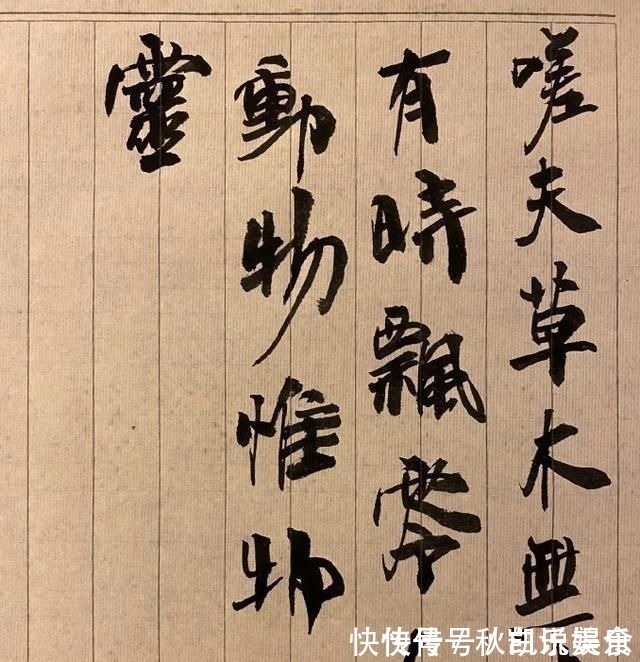 嗟夫草木無
有時飄零
動物惟物
靈
快传号